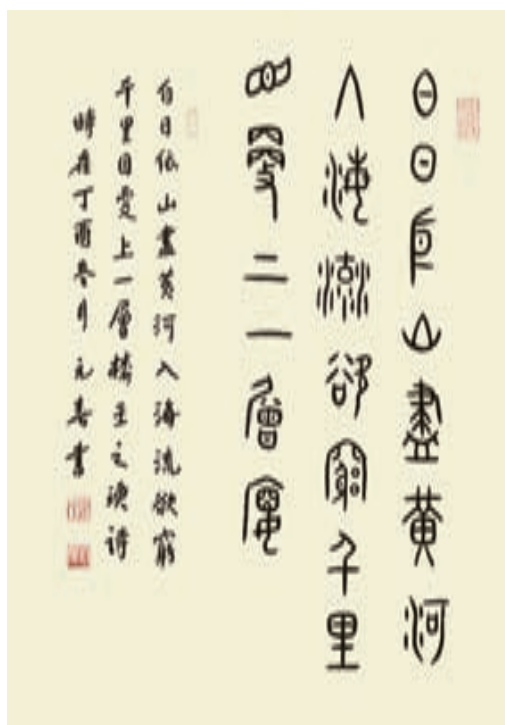 白日依山盡黄河
入海流欲窮千里
目更上一層樓
白日依山盡黄河入海流欲窮
千里目更上一層樓王之渙詩
時在丁酉冬月元書